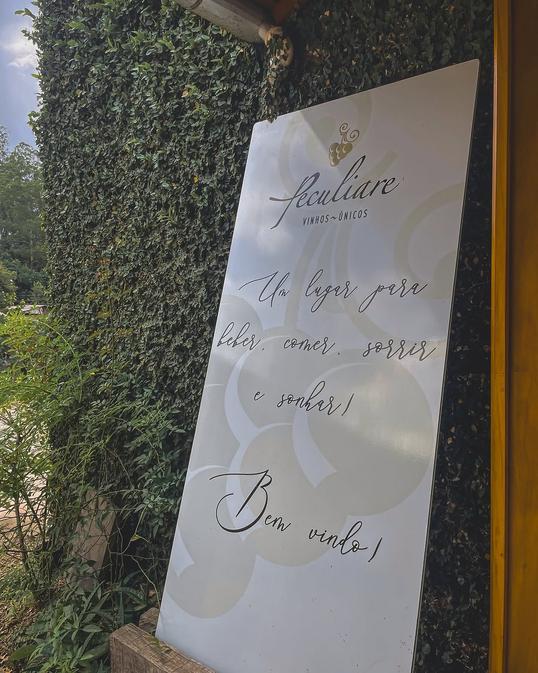 Peculiare
VINHOS~ÚNICOS
Um lugar para
beber, comer, sorrir
e sonhar!
Bem vindo!